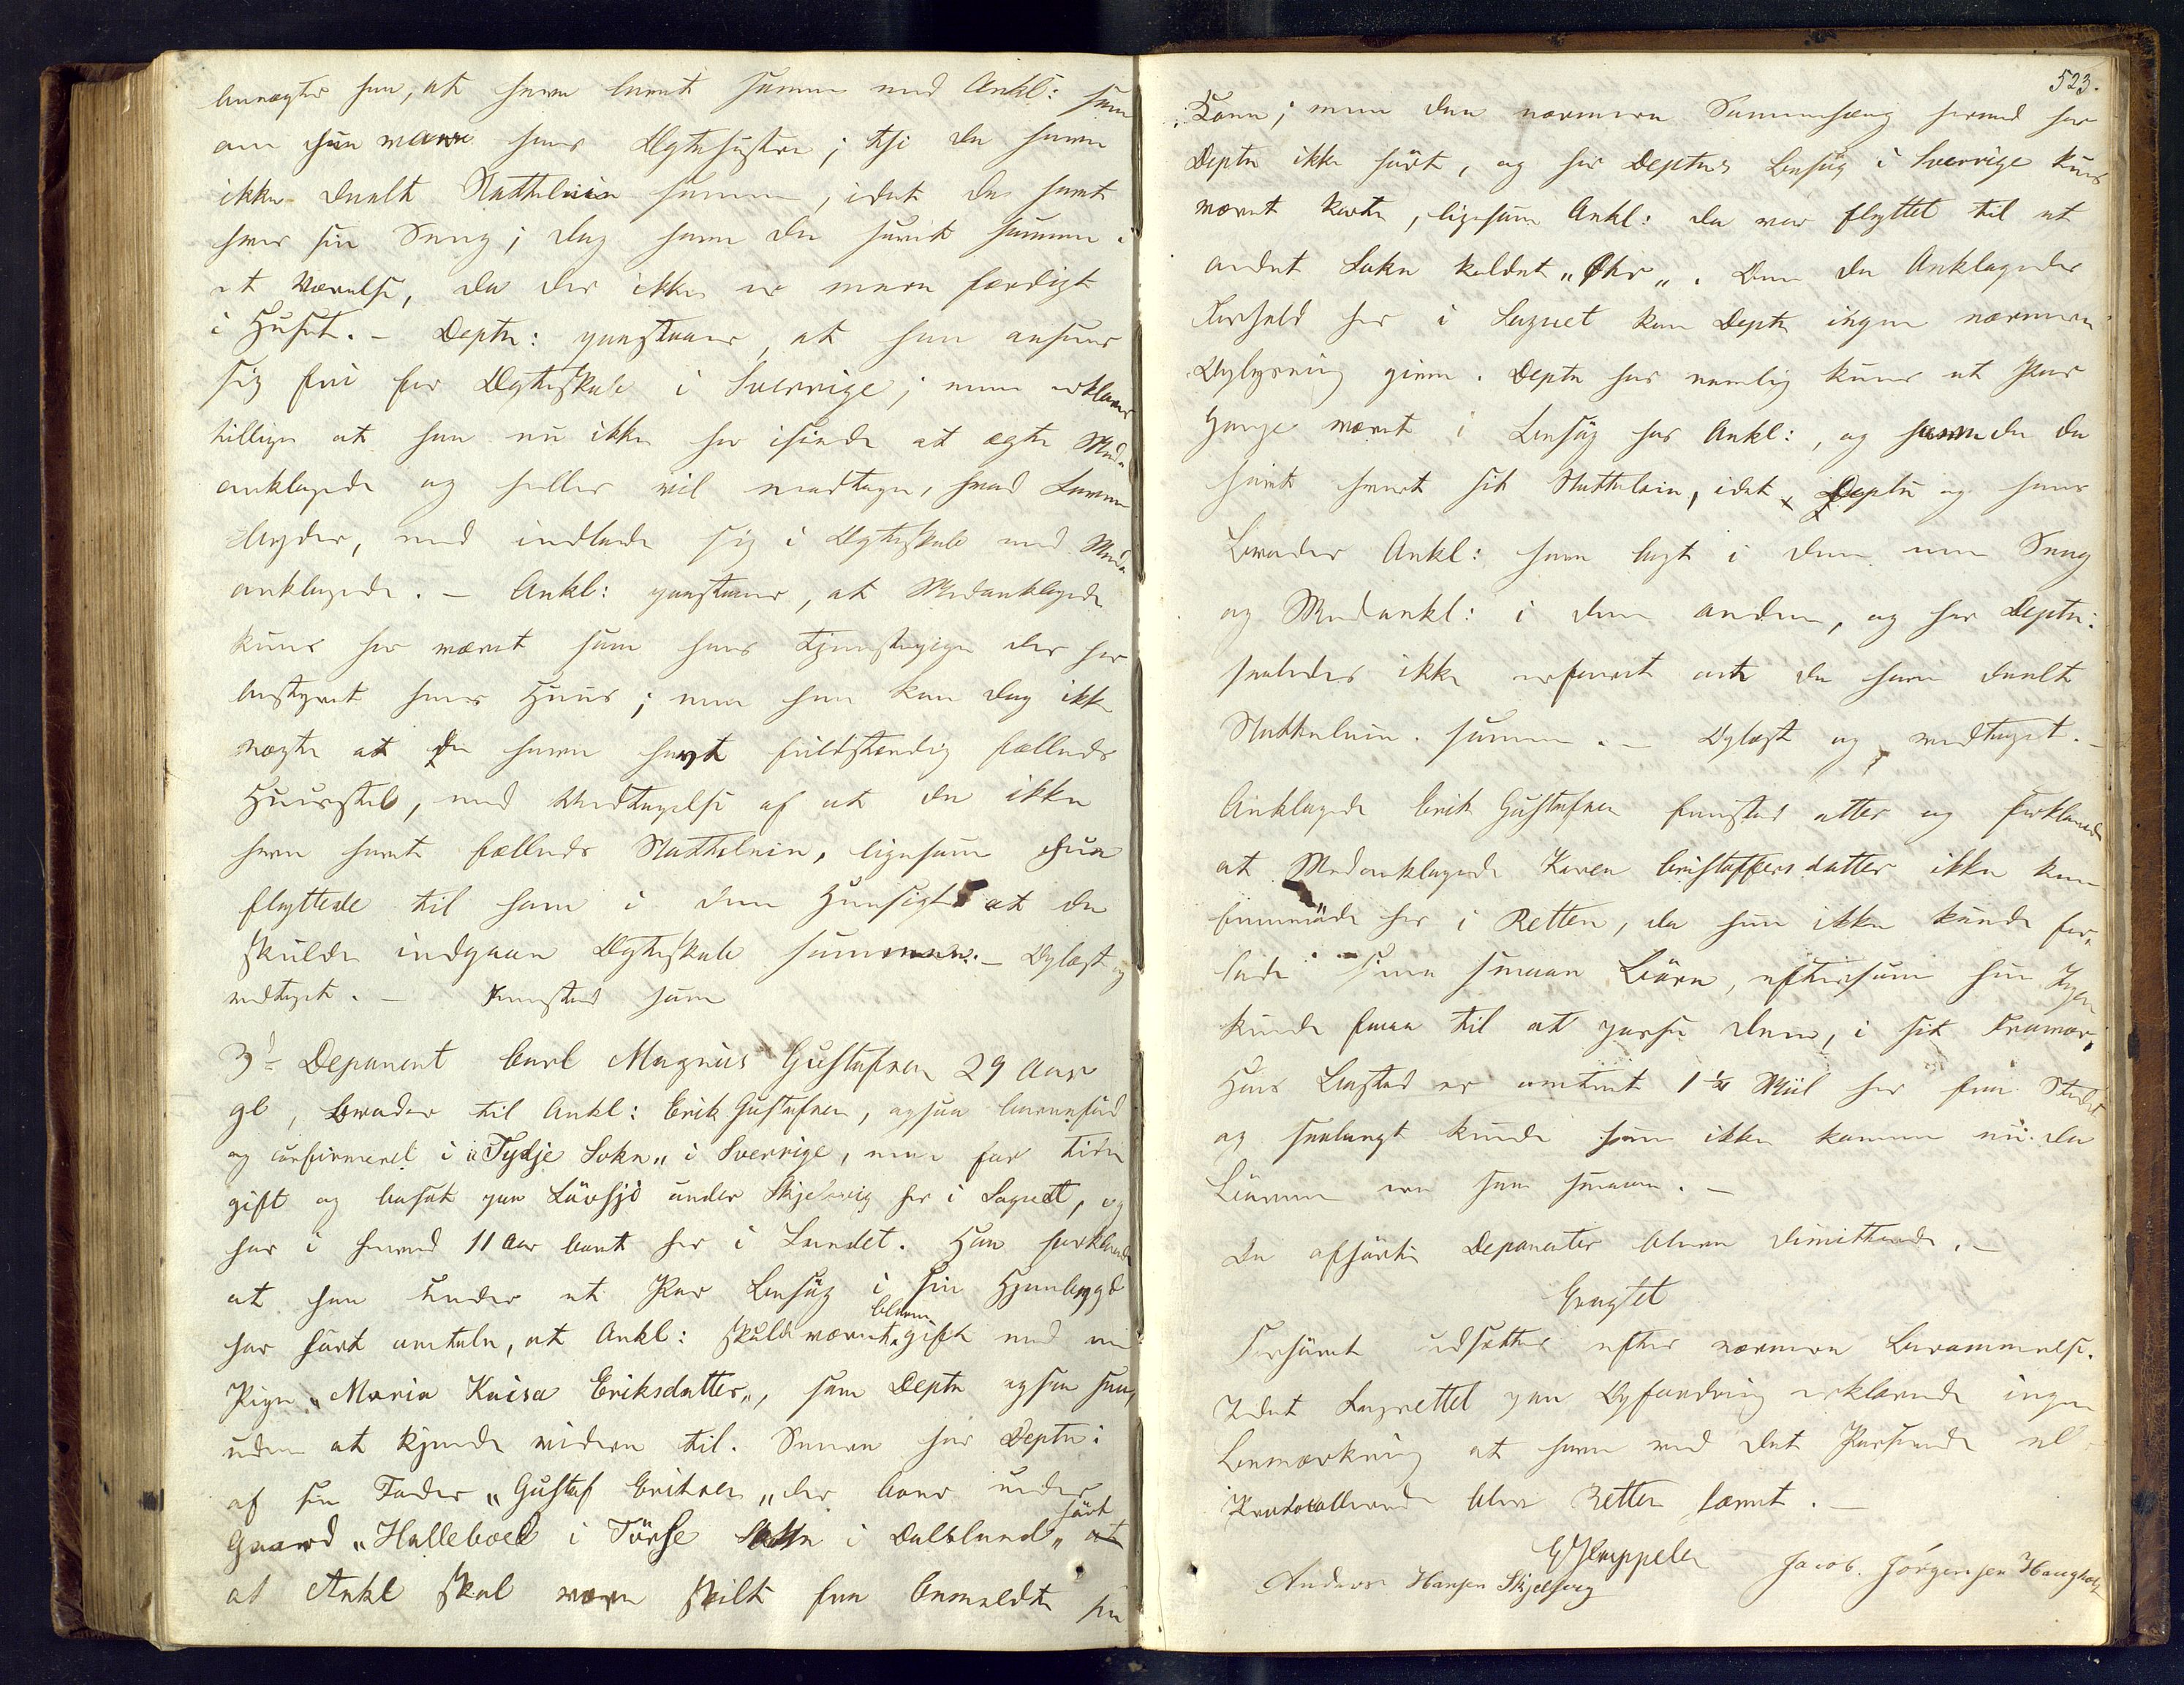 benægter han, at have levet sammen med Ankl: som
om hun vare hans Ægtehustru; thi de have
ikke deelt Natteleie sammen, idet de havt
hver sin Seng; dog have de sovet sammen i
et Værelse, da der ikke er mere færdigt
i Huset. – Deptn: paastaaer, at han ansees
sig fri for Ægteskab i Sverrige; men erklærer
tillige at han nu ikke har isinde at ægte Med-
anklagede og heller vil modtage, hvad Loven
byder, end indlade sig i Ægteskab med Med-
anklagede. – Ankl: paastaaer, at Medanklagede
kuns har været som hans Tjenestepige der har
bestyret hans Huus; men han kan dog ikke
nægte at de have havt fuldstændig fælleds
Huusstel, med Undtagelse af at de ikke
have havt fælleds Natteleie, ligesom hun
flyttede til ham i den Hensigt at de
skulde indgaae Ægteskab sammen. – Oplæst og
vedtaget. – Fremstod som
3die Deponent Carl Magnus Gustafsen 29 Aar
gl, Broder til Ankl: Erik Gustafsen, ogsaa barnefød
og confirmeret i "Tydje Sokn" i Sverrige, men for Tiden
gift og bosat paa Lövsjö under Skjelsvig her i Sognet, og
har i henved 11 Aar boet her i Landet. Han forklarede
at han under et Par Besøg i sin Hjembygd
har hørt omtale, at Ankl: skulde været bleven gift med en
Pige "Maria Kaisa Eriksdatter", som Deptn ogsaa saae,
uden at kjende videre til. Senere har Deptn:
af sin Fader "Gustaf Eriksen" der boer under
Gaard "Halleboel i Törse Sokn i Dalsland" hørt
at Ankl skal være skilt fra bemeldte sin
523.
Kone; men den nærmere Sammenhæng hermed har
Deptn ikke hørt, og har Deptns Besøg i Sverrige kuns
været korte, ligesom Ankl: da var flyttet til et
andet Sokn kaldet "Ohr". Om de Anklagedes
Forhold her i Sognet kan Deptn ingen nærmere
Oplysning give. Deptn har nemlig kuns et Par
Gange været i Besøg hos Ankl:, og have de da
havt hvert sit Natteleie, idet Deptn og hans
Broder Ankl: have ligt i den ene Seng
og Medankl: i den anden, og har Deptn:
saaledes ikke erfaret at de have deelt
Natteleie sammen. – Oplæst og vedtaget. –
Anklagede Erik Gustafsen fremstod atter og forklarede
at Medanklagede Karen Cristoffersdatter ikke kan
fremmøde her i Retten, da hun ikke kunde for-
lade sine smaae Börn, eftersom hun Ingen
kunde faae til at passe dem, i sit Fravær,
Hans Bosted er omtrent 1 ¼ Miil her fra Stedet
og saalangt kunde hun ikke komme nu da
Börnene ere saa smaae. –
De afhørte Deponenter bleve dimitterede. –
Eragtet
Forhøret udsættes efter nærmere Berammelse.
Idet Lagrettet paa Opfordring erklærede ingen
Bemærkning at have ved det Passerede ell.
Protocollerede blev Retten hævet. –
Anders Hansen Skjelsvig
Jacob Jörgensen Haugholt